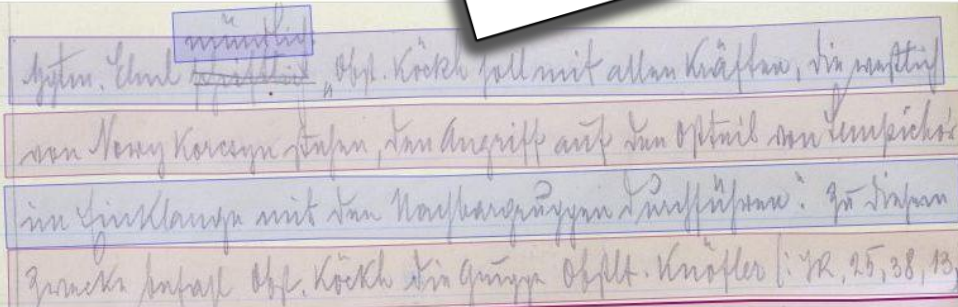 mündlich
Hptm. Eml schriftlich „Obst. Köckh soll mit allen Kräften, die westlich
von Nowy Korczyn stehen, den Angriff auf den Ostteil von
im Einklange mit den Nachbargruppen durchführen." Zu diesem
Zwecke befahl Obst. Köckh die Gruppe Obstlt. Knöfler (: IR, 25, 38, 13,